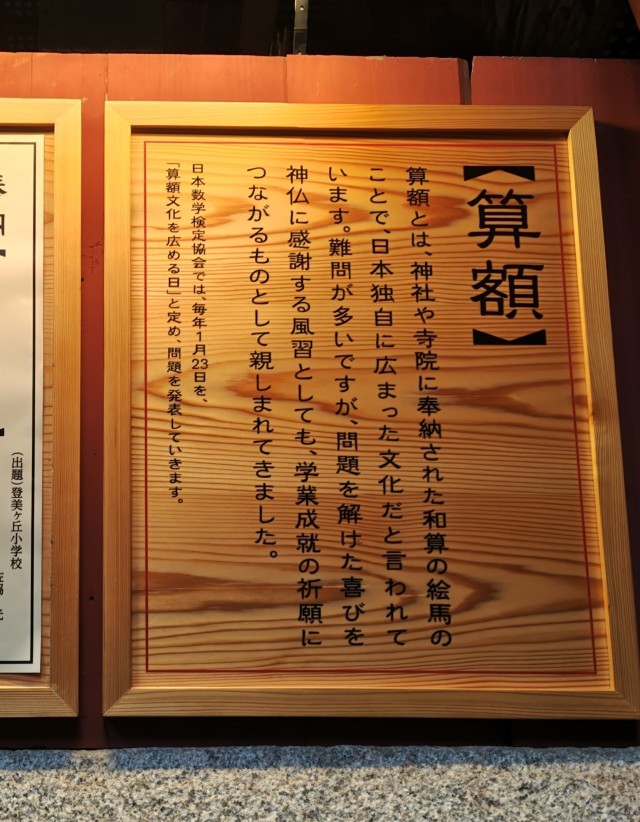 【算額】
算額とは、神社や寺院に奉納された和算の絵馬の
ことで、日本独自に広まった文化だと言われて
います。難問が多いですが、問題を解けた喜びを
神仏に感謝する風習としても、学業成就の祈願に
つながるものとして親しまれてきました。
日本数学検定協会では、毎年1月23日を、
「算額文化を広める日」と定め、問題を発表していきます。
(出題)登美ヶ丘小学校